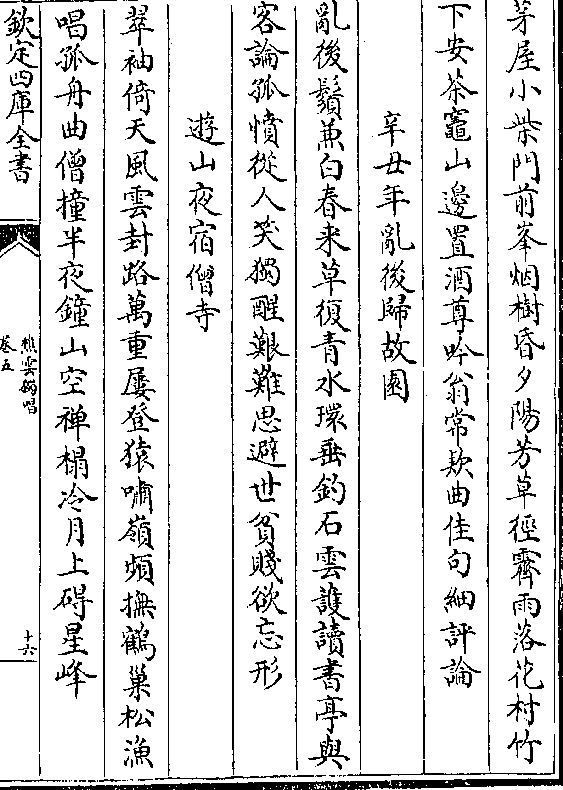 茅屋小柴門前峯烟樹昏夕陽芳草徑霽雨落花村竹
下安茶竈山邊置酒尊吟翁常欵曲佳句細評論
辛丑年亂後歸故園
亂後鬚兼白春来草復青水環垂釣石雲護讀書亭與
客論孤憤從人笑獨醒艱難思避世貧賤欲忘形
遊山夜宿僧寺
翠袖倚天風雲封路萬重屢登猿嘯嶺頻撫鶴巢松漁
唱孤舟曲僧撞半夜鐘山空禅榻冷月上碍星峰
欽定四庫全書
樵雲獨唱
卷五
十六